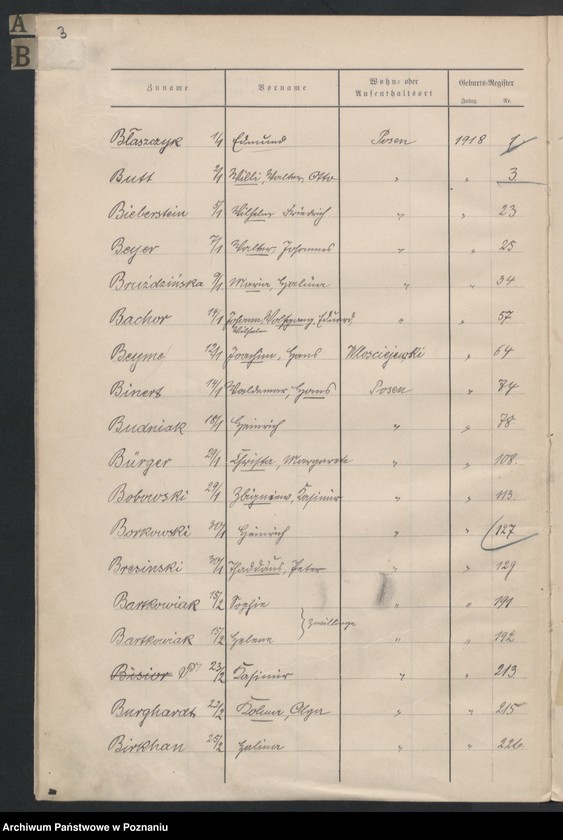 A
B
3
Zuname Vorname Wohn- oder Aufenthaltsort Geburts-Register
Jahrg. Nr.
Błaszczyk 1/1 Edmund Posen 1918 1
Butt 2/1 Willi, Walter, Otto " " 3
Bieberstein 5/1 Wilhelm Friedrich " " 23
Beyer 7/1 Walter, Johannes " " 25
Bruździńska 9/1 Maria, Halina " " 34
Bachor Johann, Wolfgang, Eduard, " " 57
Wilhelm
Beyme 12/1 Joachim, Hans Wlosciejewski " 64
Binert 14/1 Waldemar, Hans Posen " 74
Budniak 18/1 Heinrich " " 78
Bürger Christa, Margarete " " 108
Bobowski 29/1 Zbigniew, Kasimir " " 113
Borkowski 30/1 Heinrich " " 127
Bresinski 30/1 Thaddäus, Peter " " 129
Bartkowiak 15/2 Sophie " " 191
Zwillinge
Bartkowiak 15/2 Helene " " 192
Bisior 23/2 Kasimir " " 213
Burghardt 22/2 Olga " " 215
Birkhan 25/2 Halina " " 226
Archiwum Państwowe w Poznaniu